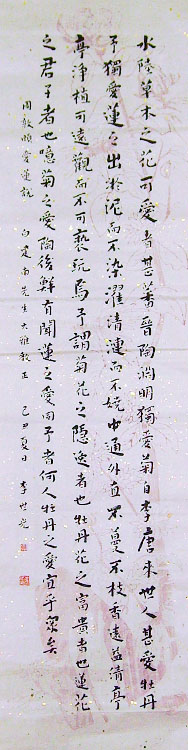 水陸草木之花可愛者甚蕃晉陶淵明獨愛菊自李唐來世人甚愛牡丹
予獨愛蓮之出淤泥而不染濯清漣而不妖中通外直不蔓不枝香遠益清亭
亭淨植可遠觀而不可褻玩焉予謂菊花之隱逸者也牡丹花之富貴者也蓮花
之君子者也噫菊之愛陶後鮮有聞蓮之愛同予者何人牡丹之愛宜乎眾矣
周敦頤愛蓮說 白建南先生大雅教正 己丑夏日 李世